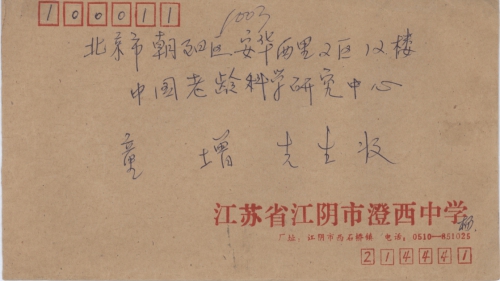 100011
1003
北京市朝阳区安华西里2区12楼
中国老龄科学研究中心
童增先生收
江苏省江阴市澄西中学
厂址：江阴市西石桥镇 电话：0510-851025
214441